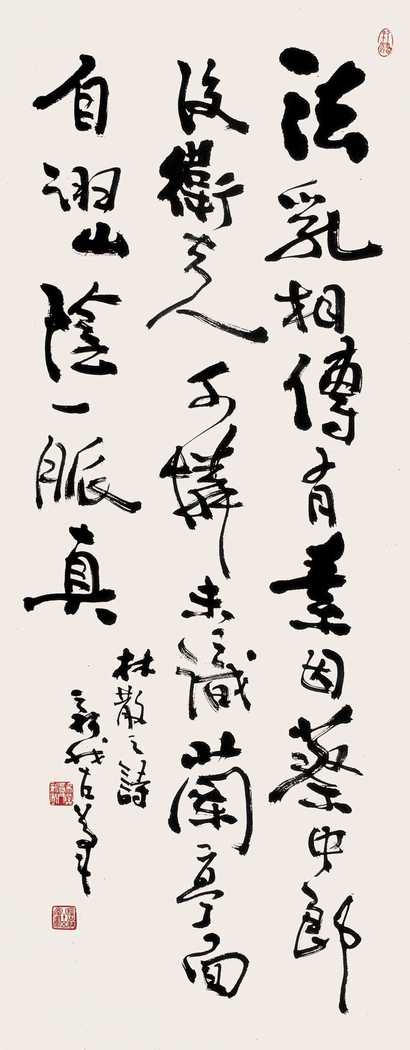 法乳相傳有素因蔡中郎
後衛夫人可憐未識蘭亭面
自詡山陰一脈真
林散之詩